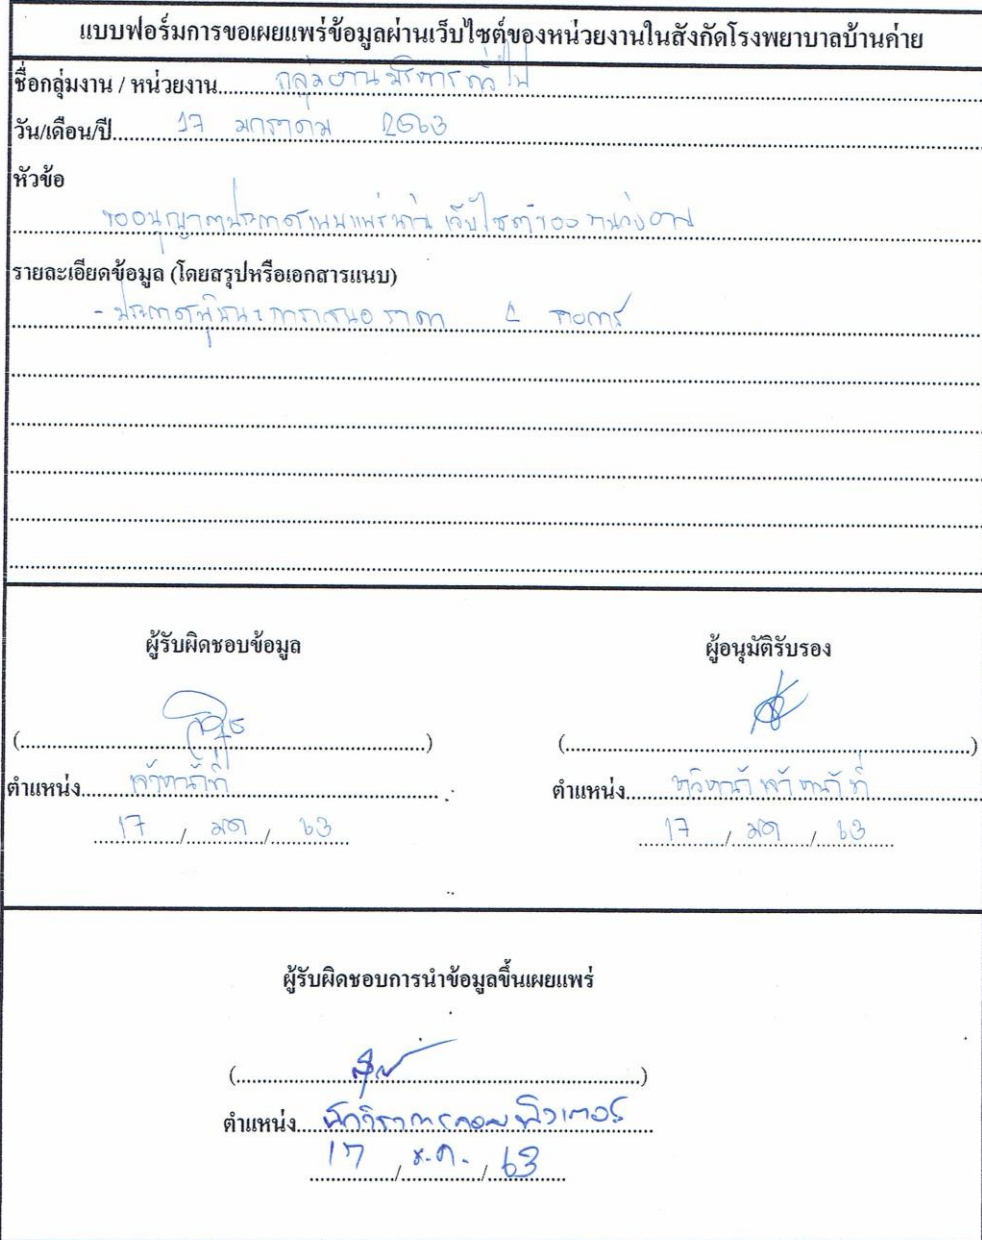 แบบฟอร์มการขอเผยแพร่ข้อมูลผ่านเว็บไซต์ของหน่วยงานในสังกัดโรงพยาบาลบ้านค่าย
ชื่อกลุ่มงาน / หน่วยงาน.....กลุ่มงานบริหารทั่วไป
วัน/เดือน/ปี.....17 มกราคม 2563
หัวข้อ
ขออนุญาตประกาศเผยแพร่ผ่านเว็บไซต์ของหน่วยงาน
รายละเอียดข้อมูล (โดยสรุปหรือเอกสารแนบ)
- ประกาศผู้ชนะการเสนอราคา รายการ
ผู้รับผิดชอบข้อมูล ผู้อนุมัติรับรอง
(..........) (..........)
ตำแหน่ง.....เจ้าหน้าที่ ตำแหน่ง.....หัวหน้าเจ้าหน้าที่
17 / มค / 63 17 / มค / 63
ผู้รับผิดชอบการนำข้อมูลขึ้นเผยแพร่
(..........)
ตำแหน่ง.....นักวิชาการคอมพิวเตอร์
17 / ม.ค. / 63